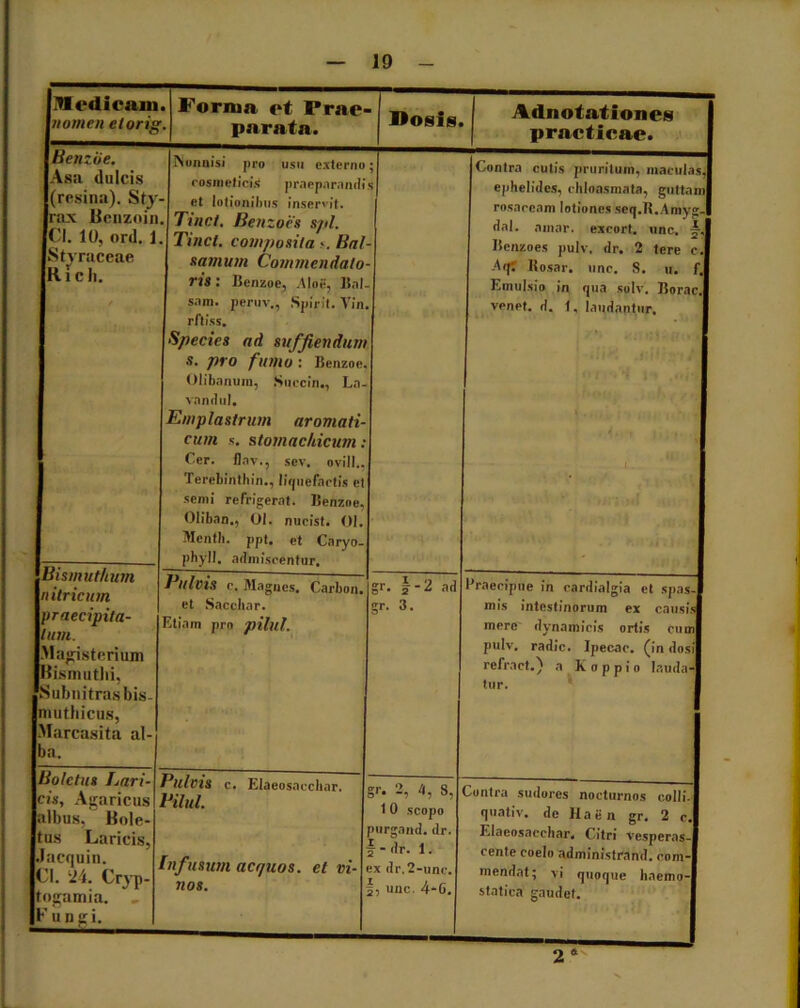 — 19 —
Medicam.
nomen et orig.
Forma et Prae-
parata.
Dosis.
Adnotationes
practicae.
Benzöe.
Asa dulcis
(resina). Sty-
rax Benzoin.
Cl. 10, ord. 1.
Styraceae
Rich.
Nonnisi pro usu externo;
cosmeticis praeparandis
et lotionibus inservit.
Tinct. Benzoës spl.
Tinct. composita s. Bal-
samum Commendato-
ris: Benzoe, Aloë, Bal-
sam. peruv., Spirit. Vin.
rftiss.
Species ad suffiendum
s. pro fumo: Benzoe,
Olibanum, Succin., La-
vandul.
Emplastrum aromati-
cum s. stomachicum:
Cer. flav., sev. ovill.,
Terebinthin., liquefactis et
semi refrigerat. Benzoe,
Oliban., Ol. nucist. Ol.
Menth. ppt. et Caryo-
phyll. admiscentur.
Contra cutis pruritum, maculas,
ephelides, chloasmata, guttam
rosaceam lotiones seq. R. Amyg-
dal. amar. excort. unc. ½,
Benzoes pulv. dr. 2 tere c.
Aq. Rosar. unc. S. u. f.
Emulsio in qua solv. Borac.
venet. d. 1, laudantur.
Bismuthum
nitricum
praecipita-
tum.
Magisterium
Bismuthi,
Subnitras bis-
muthicus,
Marcasita al-
ba.
Pulvis c. Magnes. Carbon.
et Sacchar.
Etiam pro pilul.
gr. ½-2 ad
gr. 3.
Praecipue in cardialgia et spas-
mis intestinorum ex causis
mere dynamicis ortis cum
pulv. radic. Ipecac. (in dosi
refract.) a Koppio lauda-
tur.
Boletus Lari-
cis, Agaricus
albus, Bole-
tus Laricis,
Jacquin.
Cl. 24. Cryp-
togamia.
Fungi.
Pulvis c. Elaeosacchar.
Pilul.
Infusum acquos. et vi-
nos.
gr. 2, 4, 8,
10 scopo
purgand. dr.
½-dr. 1.
ex dr. 2-unc.
½, unc. 4-6.
Contra sudores nocturnos colli-
quativ. de Haën gr. 2 c.
Elaeosacchar. Citri vesperas-
cente coelo administrand. com-
mendat; vi quoque haemo-
statica gaudet.
2*